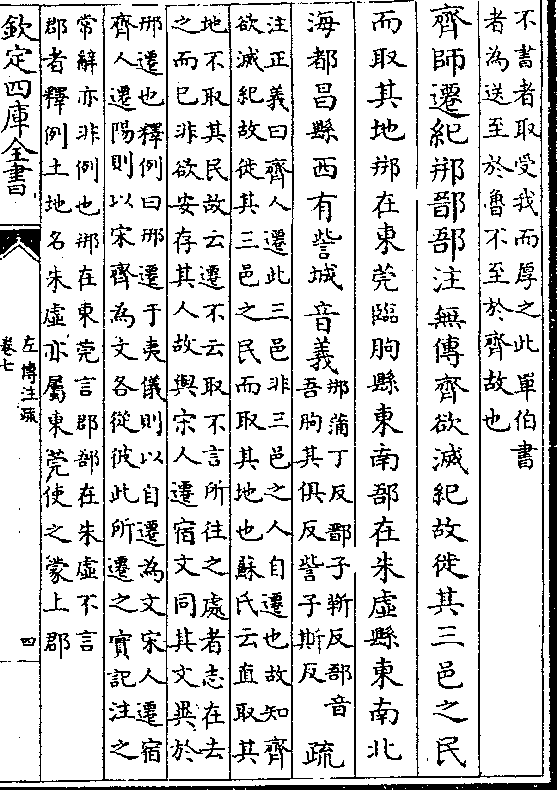 不書者取受我而厚之此單伯書
者為送至於魯不至於齊故也
齊師遷紀郱鄑郚注無傳齊欲滅紀故徙其三邑之民
而取其地郱在東莞臨朐縣東南郚在朱虛縣東南北
海都昌縣西有訾城音義郱蒲丁反鄑子斯反郚音
吾朐其俱反訾子斯反疏
注正義曰齊人遷此三邑非三邑之人自遷也故知齊
欲滅紀故徙其三邑之民而取其地也蘇氏云直取其
地不取其民故云遷不云取不言所往之處者志在去
之而已非欲安存其人故與宋人遷宿文同其文異於
邢遷也釋例曰邢遷于夷儀則以自遷為文宋人遷宿
齊人遷陽則以宋齊為文各從彼此所遷之實記注之
常辭亦非例也郱在東莞言郡郚在朱虛不言
郡者釋例土地名朱虛亦屬東莞使之蒙上郡
欽定四庫全書
左傳注疏
卷七
四